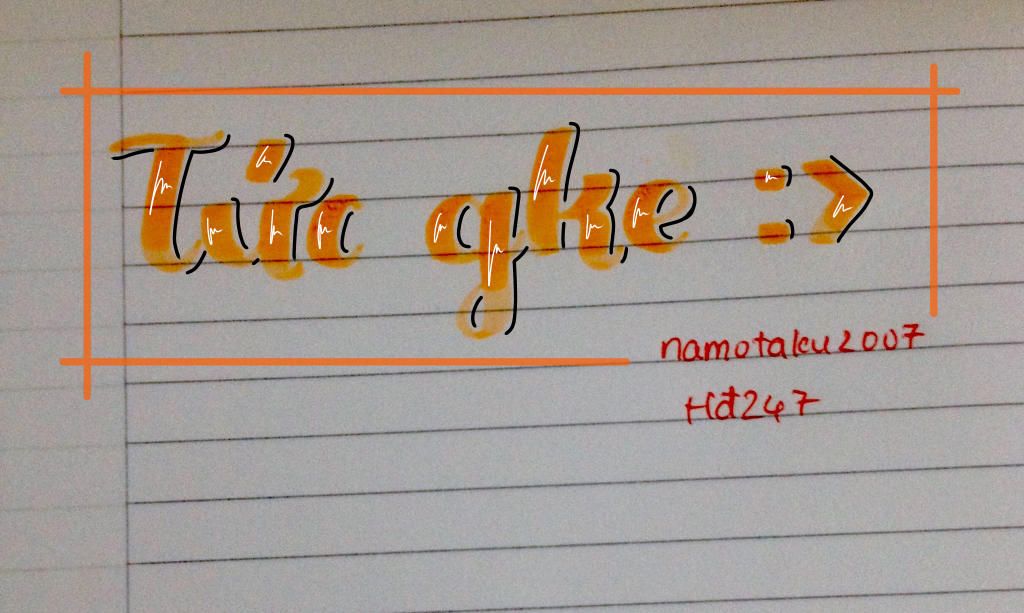 Tức gke :>
namotaku2007
Hđ247